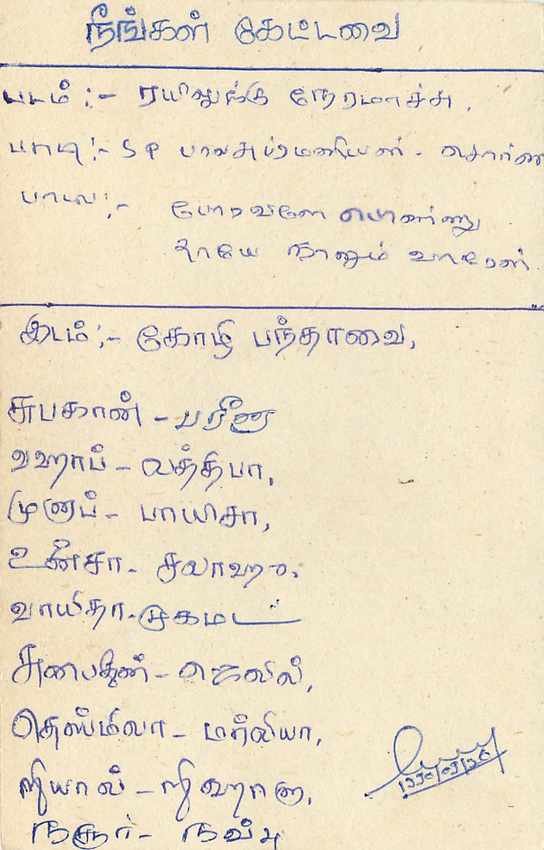 நீங்கள் கேட்டவை
படம் :- ரயிலுக்கு நேரமாச்சு.
பாடி :- SP பாலசுப்ரமணியன் - சொர்ண
பாடல் :- போறவளே பொண்ணு
தாயே நானும் வாரேன்.
இடம் :- கோழி பந்தாவை,
சுபகான் - பரீனா
வஹாப் - லத்தீபா,
முனாப் - பாயிசா,
உனீசா - சலாஹு.
வாயிதா - முகமட்
சுபைதீன் - ஜெலீல்,
தெஸ்மிலா - மர்லியா,
றியால் - றிஹானா,
நசூர் - நவ்பு